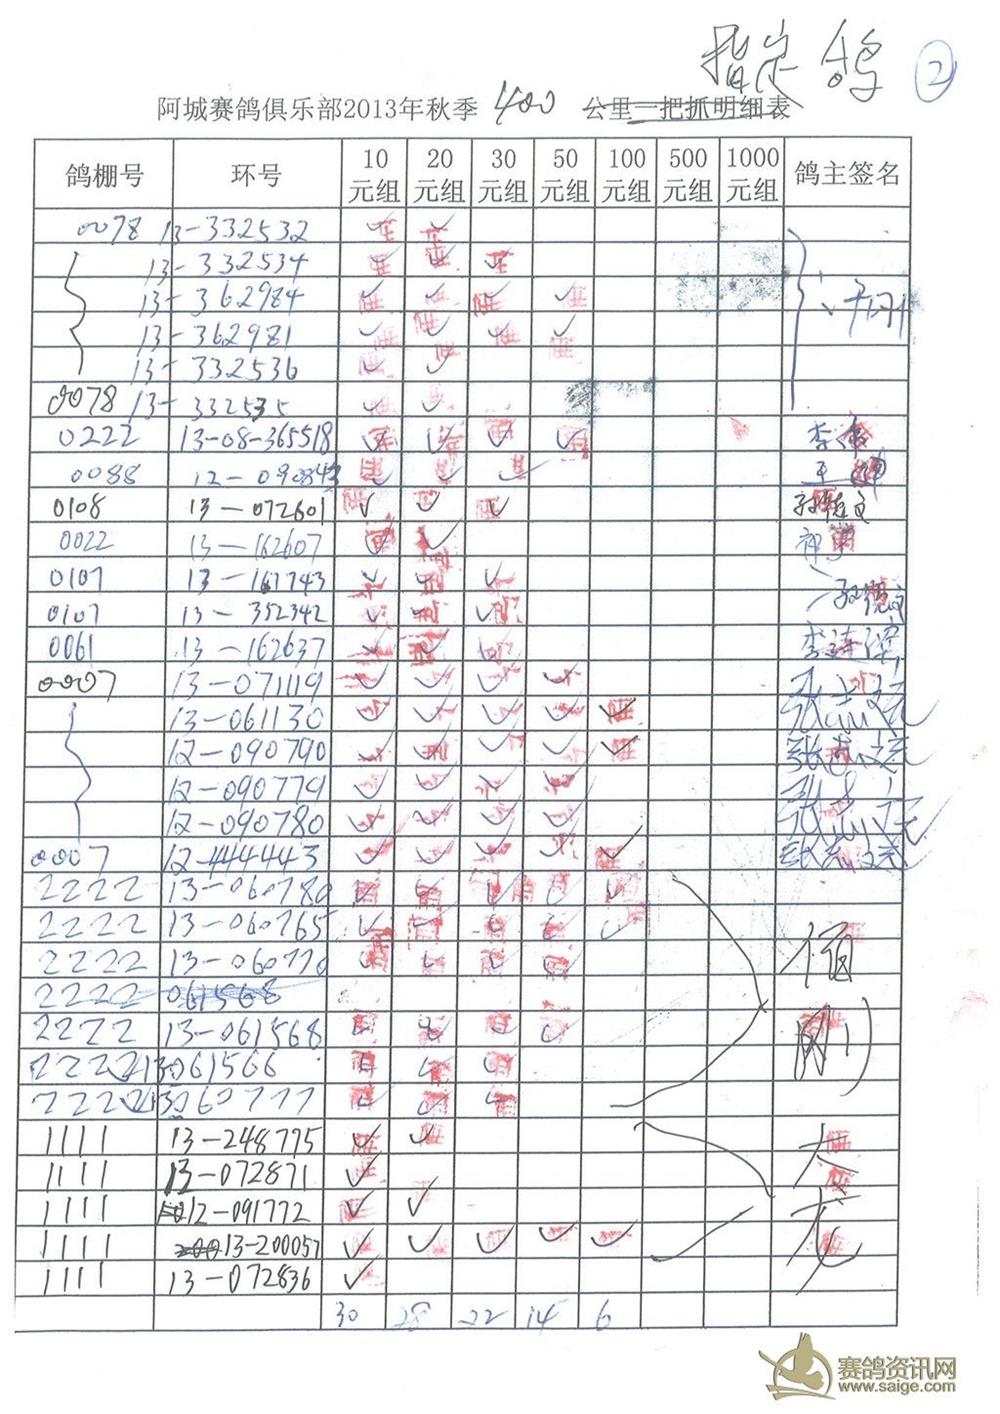 指定鸽 ②
阿城赛鸽俱乐部2013年秋季 400 公里一把抓明细表
鸽棚号 环号 10元组 20元组 30元组 50元组 100元组 500元组 1000元组 鸽主签名
0078 13-332532 ✓ ✓
13-332534 ✓ ✓ ✓
13-362984 ✓ ✓ ✓ ✓
13-362981 ✓ ✓ ✓ ✓
13-332536 ✓ ✓
0078 13-332535 ✓ ✓
0222 13-08-365518 ✓ ✓ ✓ ✓ 李
0088 12-090843 ✓ ✓ ✓ 王
0108 13-072601 ✓ ✓ ✓
0022 13-162607 ✓ ✓
0107 13-161743 ✓ ✓ ✓
0107 13-352342 ✓ ✓ ✓
0061 13-162637 ✓ ✓ ✓ 李连
0007 13-071119 ✓ ✓ ✓ ✓ 张
13-061130 ✓ ✓ ✓ ✓ ✓
12-090790 ✓ ✓ ✓ ✓ ✓ 张
12-090779 ✓ ✓ ✓ ✓ 张
12-090780 ✓ ✓ ✓ ✓ 张
0007 12-444443 ✓ ✓ ✓ ✓ ✓ 张
2222 13-060780 ✓ ✓ ✓ ✓ ✓
2222 13-060765 ✓ ✓ ✓ ✓ ✓
2222 13-060770 ✓ ✓ ✓ ✓
2222 061568
2222 13-061568 ✓ ✓ ✓ ✓
2222 13-061566 ✓ ✓ ✓
2222 13-060777 ✓ ✓ ✓
1111 13-248775 ✓ ✓
1111 13-072871 ✓
1111 12-091772 ✓ ✓
1111 13-200057 ✓ ✓ ✓ ✓ ✓
1111 13-072836 ✓
30 28 22 14 6
赛鸽资讯网
www.saige.com